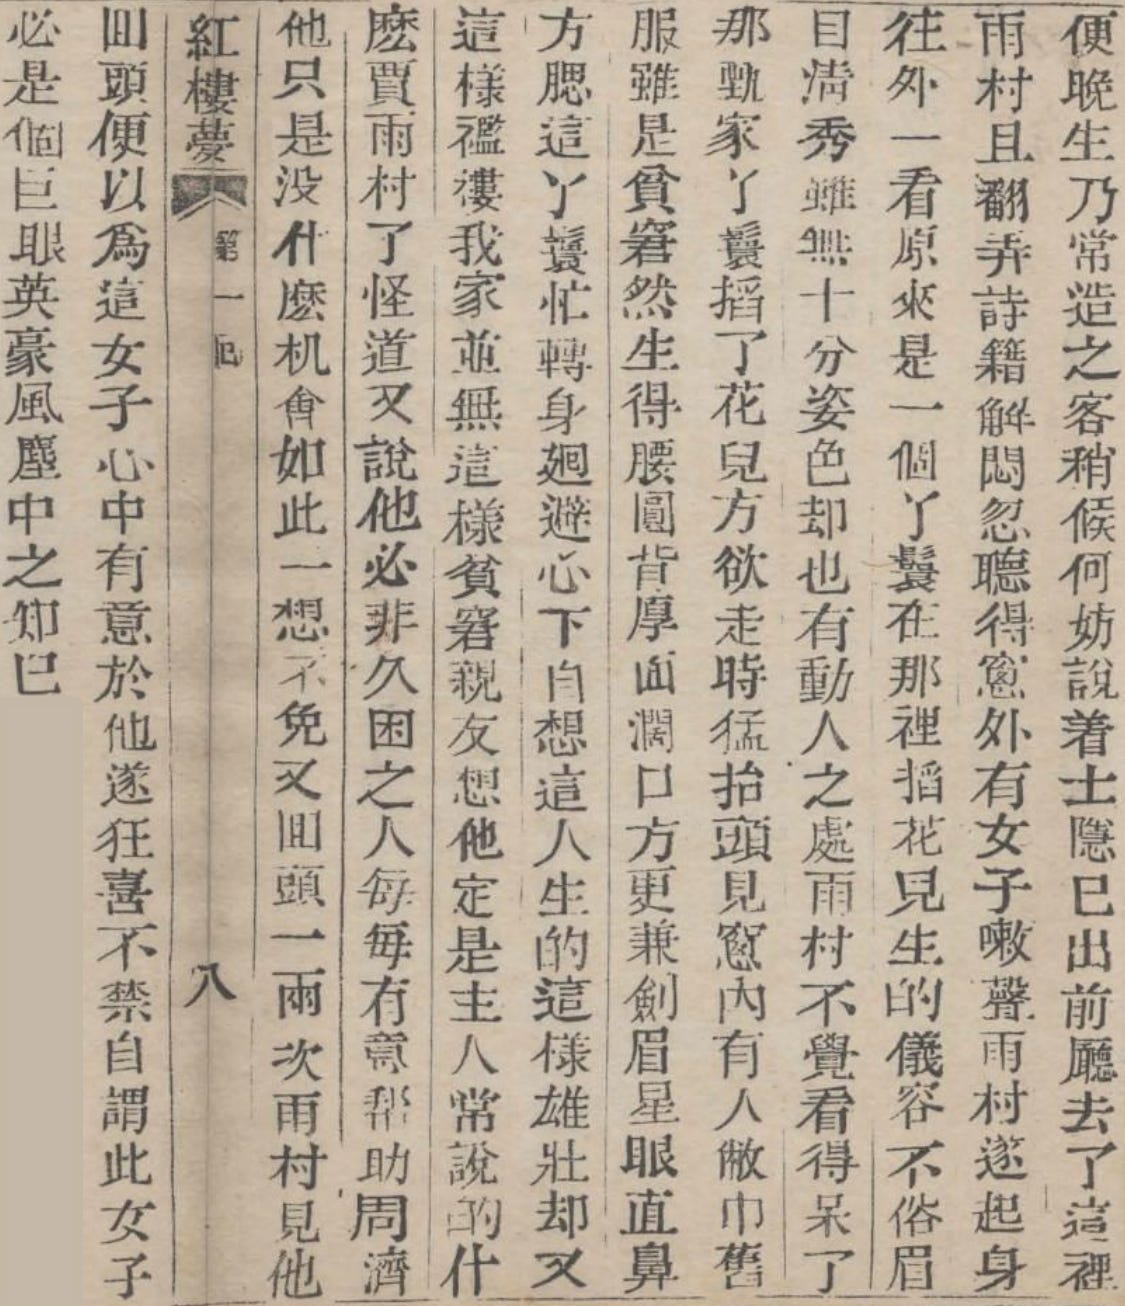 便晚生乃常造之客稍候何妨說着士隱已出前廳去了這裡
雨村且翻弄詩籍解悶忽聽得窻外有女子嗽聲雨村遂起身
往外一看原來是一個丫鬟在那裡搯花兒生的儀容不俗眉
目清秀雖無十分姿色却也有動人之處雨村不覺看得呆了
那甄家丫鬟搯了花兒方欲走時猛抬頭見窻內有人敝巾舊
服雖是貧窘然生得腰圓背厚面濶口方更兼劍眉星眼直鼻
方腮這丫鬟忙轉身廻避心下自想這人生的這樣雄壯却又
這樣襤褸我家並無這樣貧窘親友想他定是主人常說的什
麽賈雨村了怪道又說他必非久困之人每每有意帮助周濟
他只是没什麽机會如此一想不免又回頭一兩次雨村見他
紅樓夢 第一囘 八
回頭便以爲這女子心中有意於他遂狂喜不禁自謂此女子
必是個巨眼英豪風塵中之知已